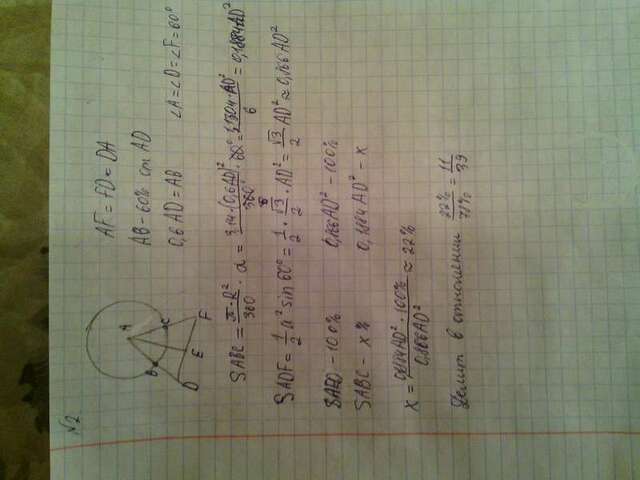 №2
A
B
C
D
E
F
AF = FD = DA
AB - 60% от AD
0,6 AD = AB
∠A = ∠D = ∠F = 60°
SABC = π·R²/360 · α = 3,14·(0,6AD)²/360° · 60° = 1,1304·AD²/6 = 0,1884AD²
SADF = 1/2 a² sin 60° = 1/2 · √3/2 · AD² = √3/2 AD² ≈ 0,866AD²
- 100% 0,866AD² - 100%
SABC - x% 0,1884AD² - x
x = AD²·100%/0,866AD² ≈ 22%
Делит в отношении 22%/71% = 11/39